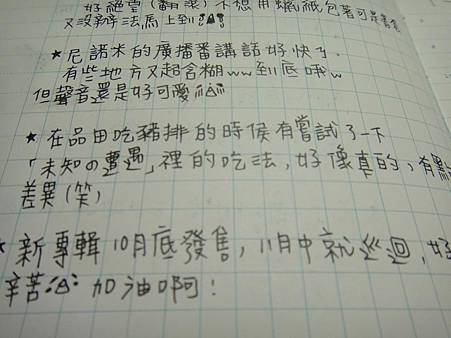 好絕望(翻滾)不想用蠟紙包著可是書套
又沒辦法馬上到!!!
★尼諾米的廣播番講話好快了.
有些地方又超含糊ww到底哦w
但聲音還是好可愛
★在品田吃豬排的時候有嘗試了一下
「未知の遭遇」裡的吃法,好像真的,有點
差異(笑)
★新專輯10月底發售,11月中就巡迴,好
辛苦 加油啊!